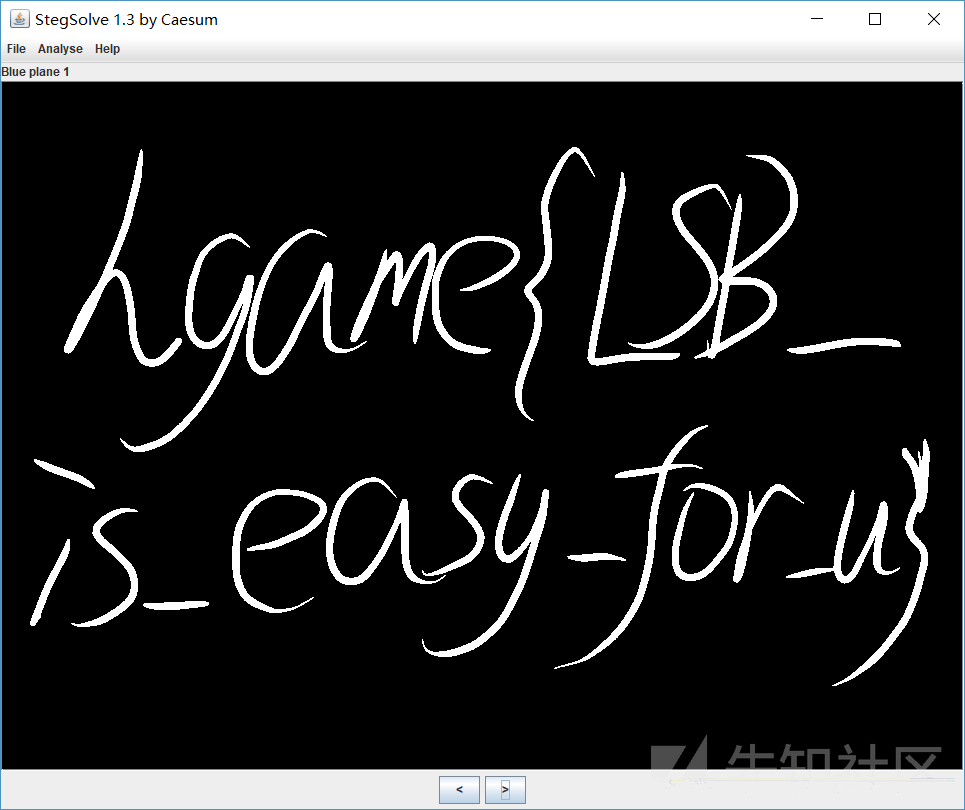 StegSolve 1.3 by Caesum
File Analyse Help
Blue plane 1
hgame{LSB_
is_easy_for_u}
先知社区
< >